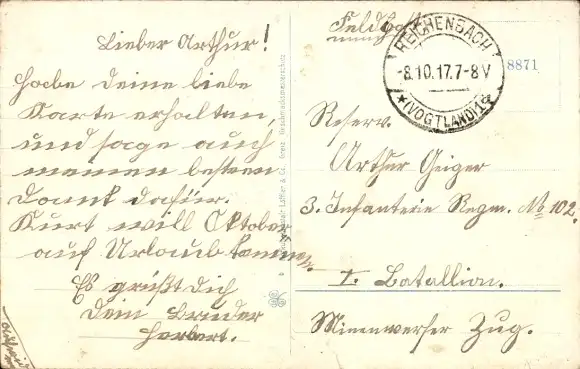 Lieber Arthur!
Habe deine liebe
Karte erhalten,
und sage auch
meinen besten
Dank dafür.
Kurt will Oktober
auf Urlaub kommen.
Es grüßt Dich
Dein Bruder
Herbert.
Feldpost
REICHENBACH
-8.10.17.7-8V
(VOGTLAND)1
8871
Reserv.
Arthur Geiger
3. Infanterie Regm. No 102.
I. Batallion.
Minenwerfer Zug.